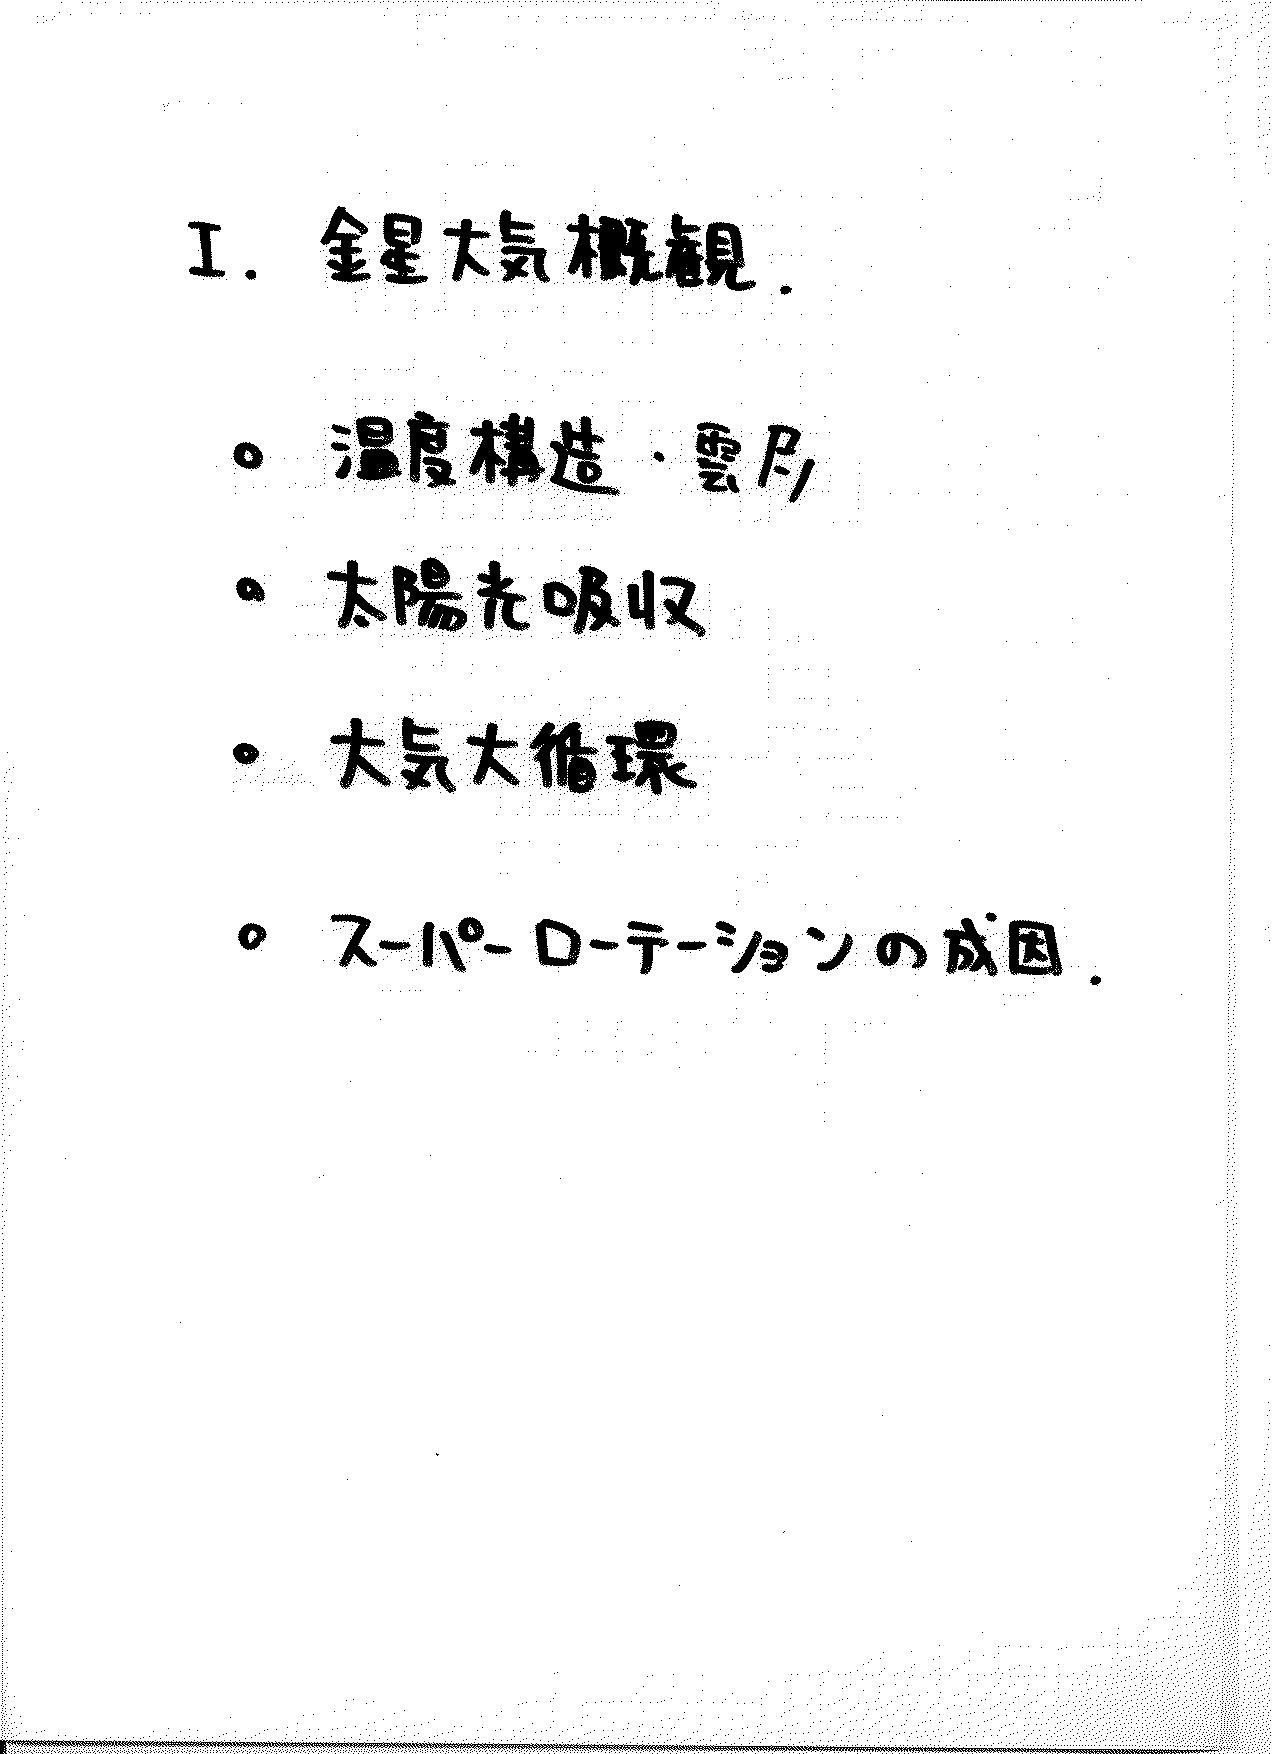 I. 金星大気概観.
○ 温度構造・雲
○ 太陽光吸収
○ 大気大循環
○ スーパーローテーションの成因.